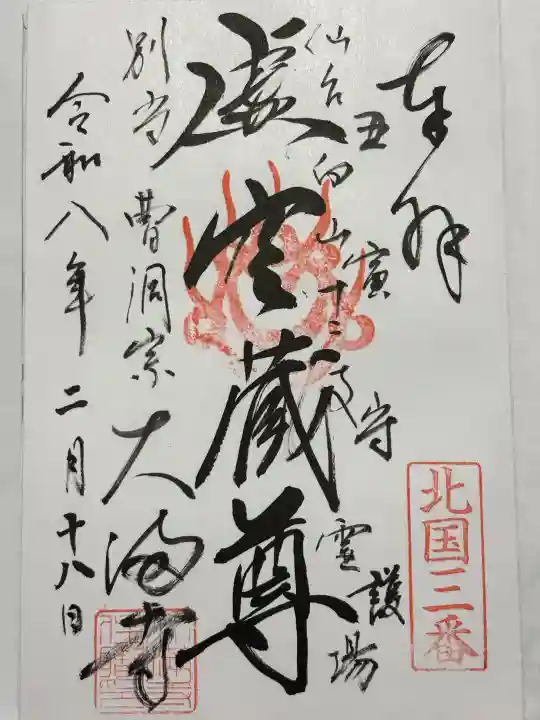 奉拝
北国三番
丑寅守護
仙台向山十二支霊場
虚空蔵尊
別当 曹洞宗 大満寺
令和八年 二月十八日